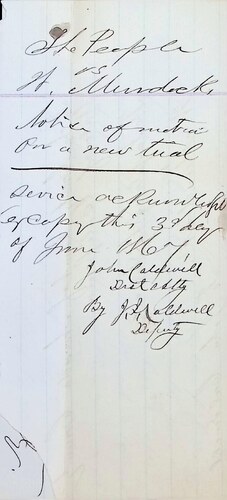 The People
vs
W. Murdock
Notice of motion
for a new trial
Service acknowledged
by copy this 3d day
of June 1867
John Caldwell
Dist Atty
By J. Caldwell
Deputy